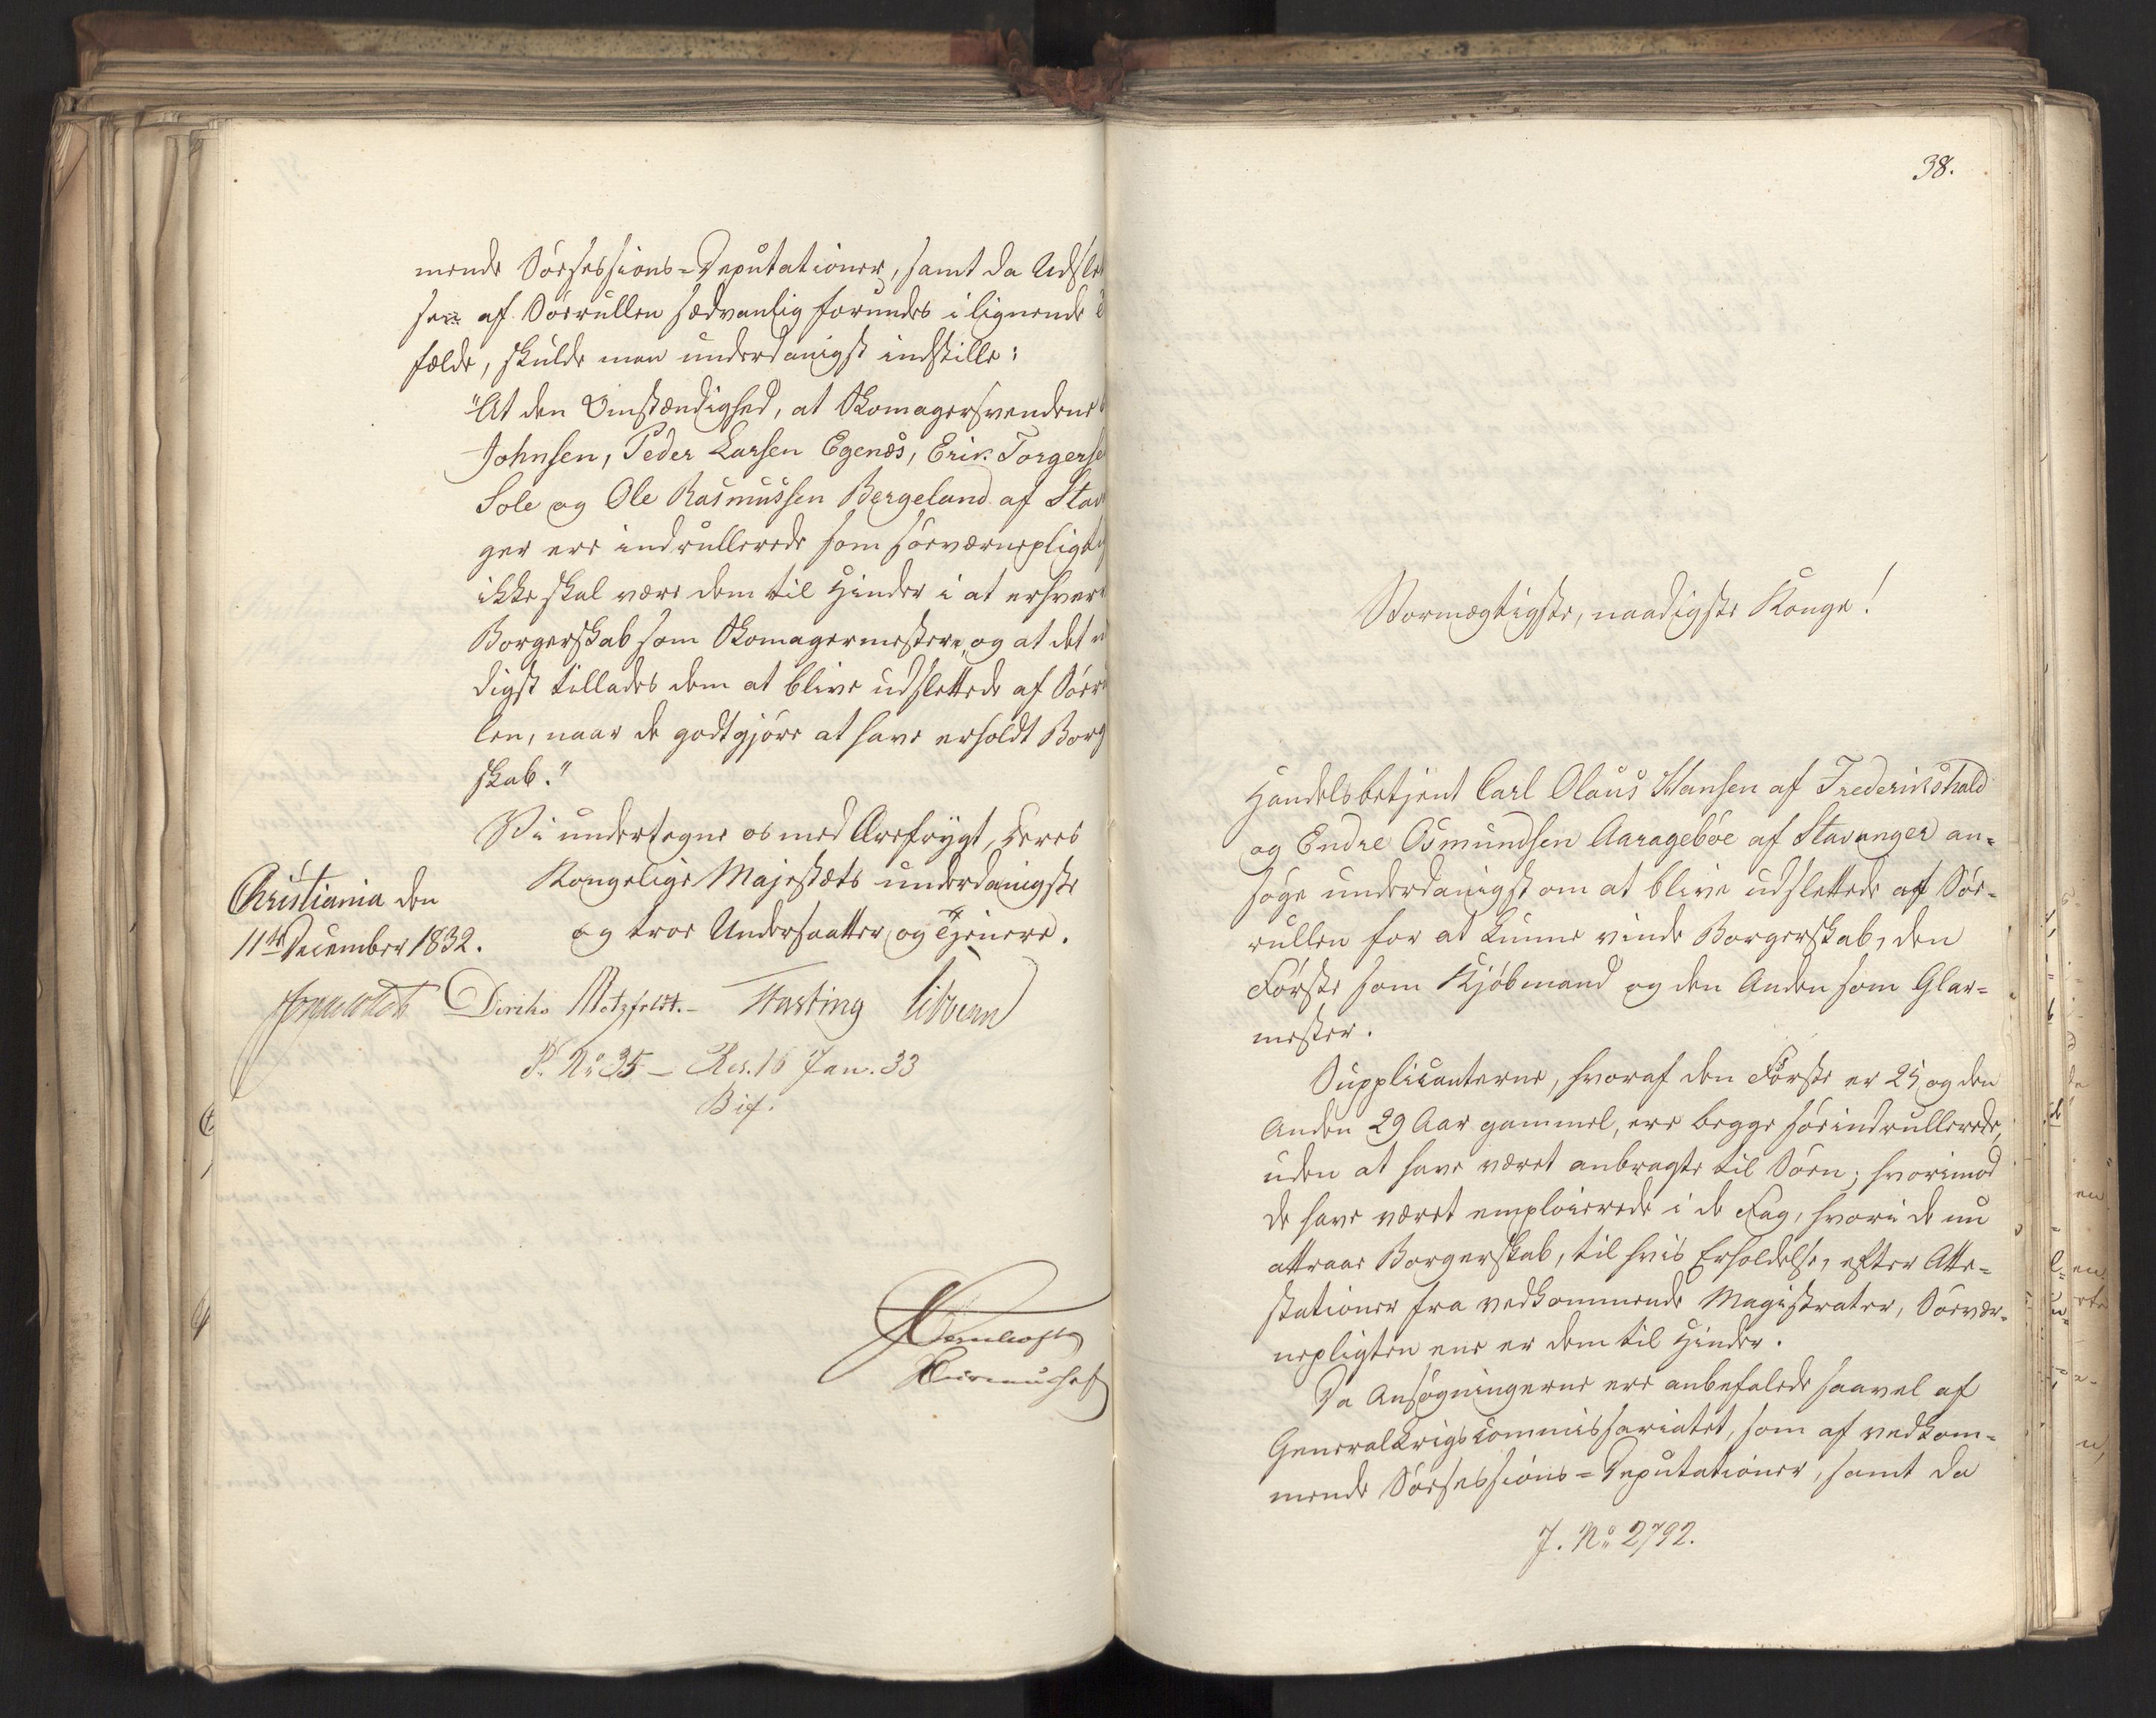 mende Söesessions-Deputationer, samt da Udslet
sen af Söerullen sædvanlig forundes i lignende
fælde, skulde man underdanigst indstille:
"At den Omstændighed, at Skomagersvendene
Johnsen, Peder Larsen Egenæs, Erik Torgerse
Sole og Ole Rasmussen Bergeland af Stav
ger ere indrullerede som söeværnepligtig
ikke skal være dem til Hinder i at erhverv
Borgerskab som Skomagermestere, og at det
digst tillades dem at blive udslettede af Söer
len, naar de godtgjöre at have erholdt Borg
skab."
Vi undertegne os med Ærefrygt, Deres
Kongelige Majestæts underdanigste
og troe Undersaatter og Tjenere.
Christiania den
11te December 1832.
Diriks Motzfeldt. Fasting Sibbern
P. No 35 - Res. 16 Jan. 33
Bif.
38.
Stormægtigste, naadigste Konge!
Handelsbetjent Carl Olaus Hansen af Frederikshald
og Endre Osmundsen Aaragebøe af Stavanger an-
söge underdanigst om at blive udslettede af Söe-
rullen for at kunne vinde Borgerskab, den
Förste som Kjöbmand og den Anden som Glar-
mester.
Supplicanterne, hvoraf den Förste er 25 og den
Anden 29 Aar gammel, ere begge söeindrullerede,
uden at have været anbragte til Söen; hvorimod
de have været emploierede i de Fag, hvori de nu
attraae Borgerskab, til hvis Erholdelse, efter Atte-
stationer fra vedkommende Magistrater, Söevær-
nepligten ene er dem til Hinder.
Da Ansögningerne ere anbefalede saavel af
Generalkrigscommissariatet, som af vedkom-
mende Söesessions-Deputationer, samt da
J. No 2792.